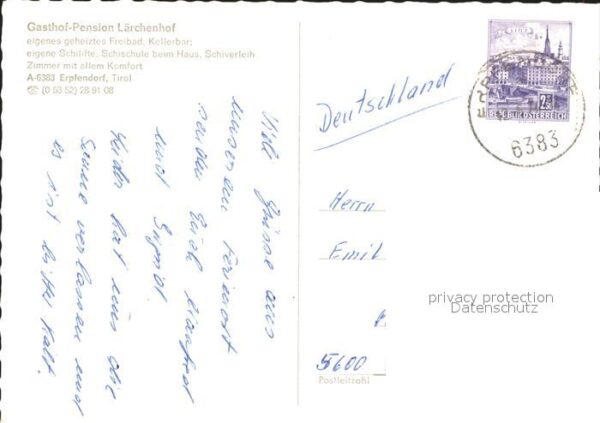 Gasthof-Pension Lärchenhof
eigenes geheiztes Freibad, Kellerbar;
eigene Schilifte, Schischule beim Haus, Schiverleih
Zimmer mit allem Komfort
A-6383 Erpfendorf, Tirol
☎ (0 53 52) 28 91 08
Viele Grüsse aus
unserem Ferienort
senden Euch Manfred
und Sigrid.
Leider hat uns die
Sonne verlassen und
es ist bitter kalt.
Deutschland
REPUBLIK ÖSTERREICH
6383
Herrn
Emil
5600
Postleitzahl
privacy protection
Datenschutz